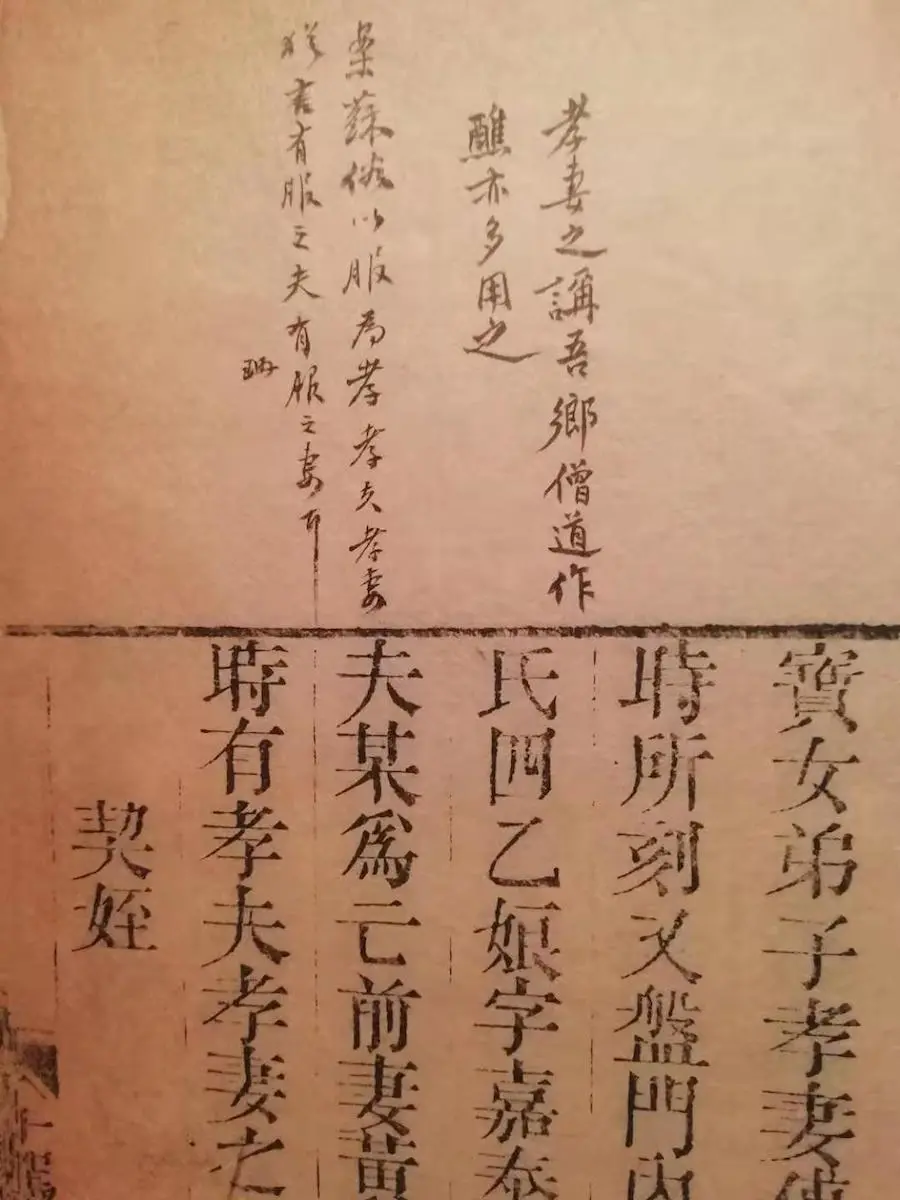 孝妻之講吾鄉僧道作
醮亦多用之
案蘇俗以服爲孝孝夫孝妻
猶言有服之夫有服之妻耳
寳女弟子孝妻
時所刻又盤門內
氏四乙娘字嘉泰
夫某爲亡前妻黄
時有孝夫孝妻之
契姪